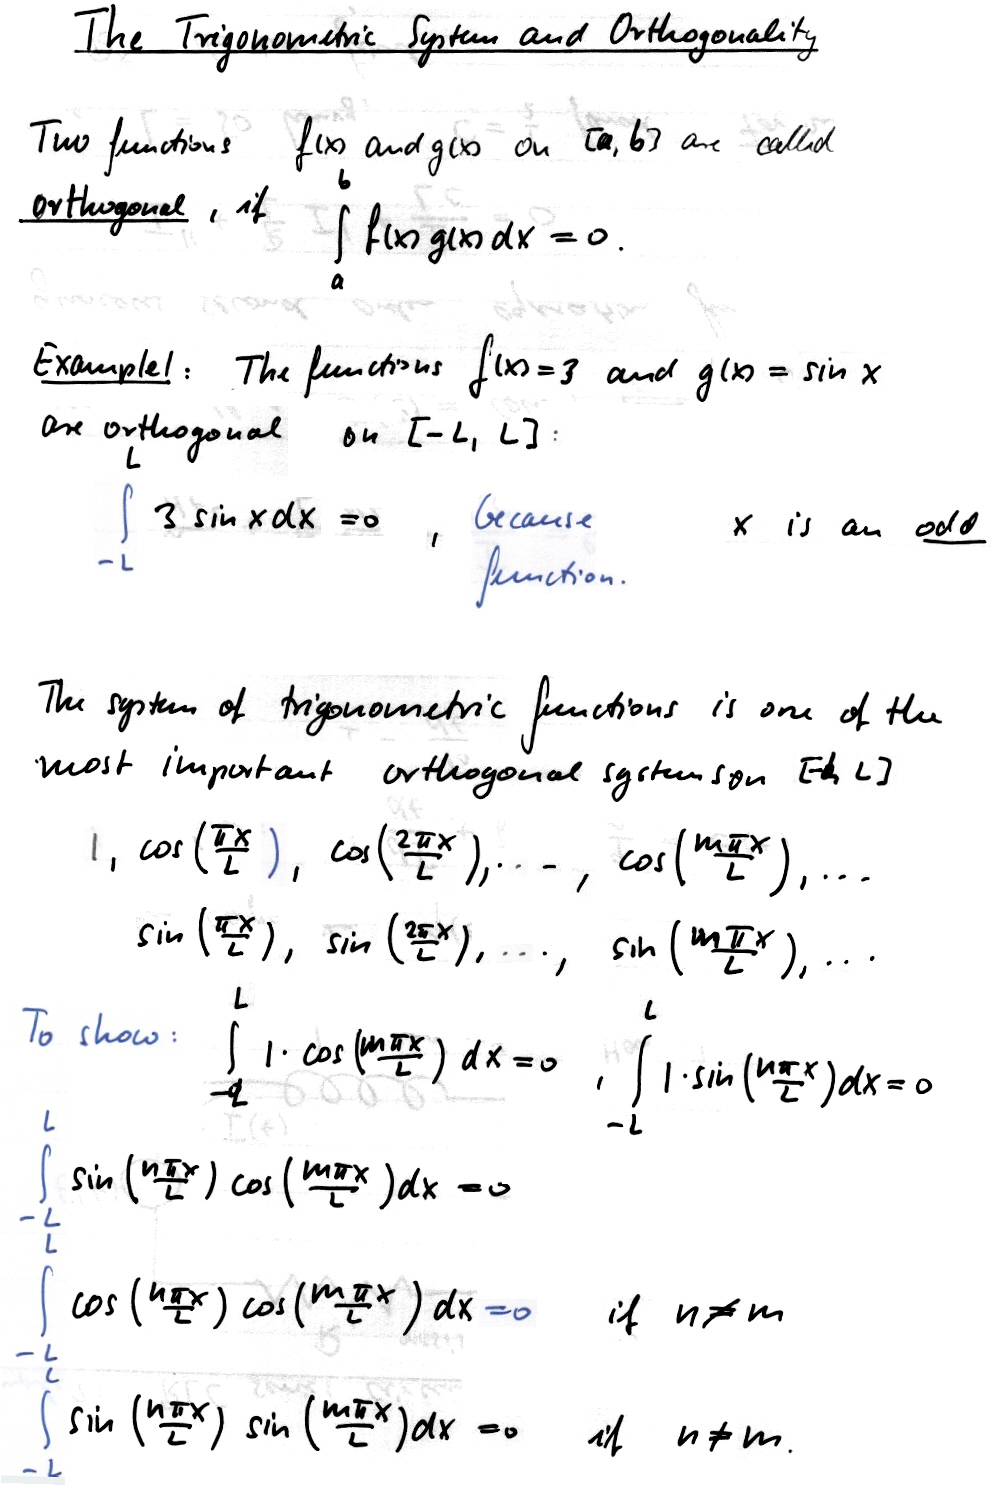 The Trigonometric System and Orthogonality
Two functions f(x) and g(x) on [a, b] are called
orthogonal, if ∫_a^b f(x) g(x) dx = 0.
Example: The functions f(x) = 3 and g(x) = sin x
are orthogonal on [-L, L]:
∫_{-L}^{L} 3 sin x dx = 0, because x is an odd
function.
The system of trigonometric functions is one of the
most important orthogonal systems on L]
1, cos (πx/L), cos (2πx/L), ..., cos (mπx/L), ...
sin (πx/L), sin (2πx/L), ..., sin (mπx/L), ...
To show: ∫_{-L}^{L} 1· cos (mπx/L) dx = 0, ∫_{-L}^{L} 1· sin (nπx/L) dx = 0
∫_{-L}^{L} sin (nπx/L) cos (mπx/L) dx = 0
∫_{-L}^{L} cos (nπx/L) cos (mπx/L) dx = 0 if n ≠ m
∫_{-L}^{L} sin (nπx/L) sin (mπx/L) dx = 0 if n ≠ m.